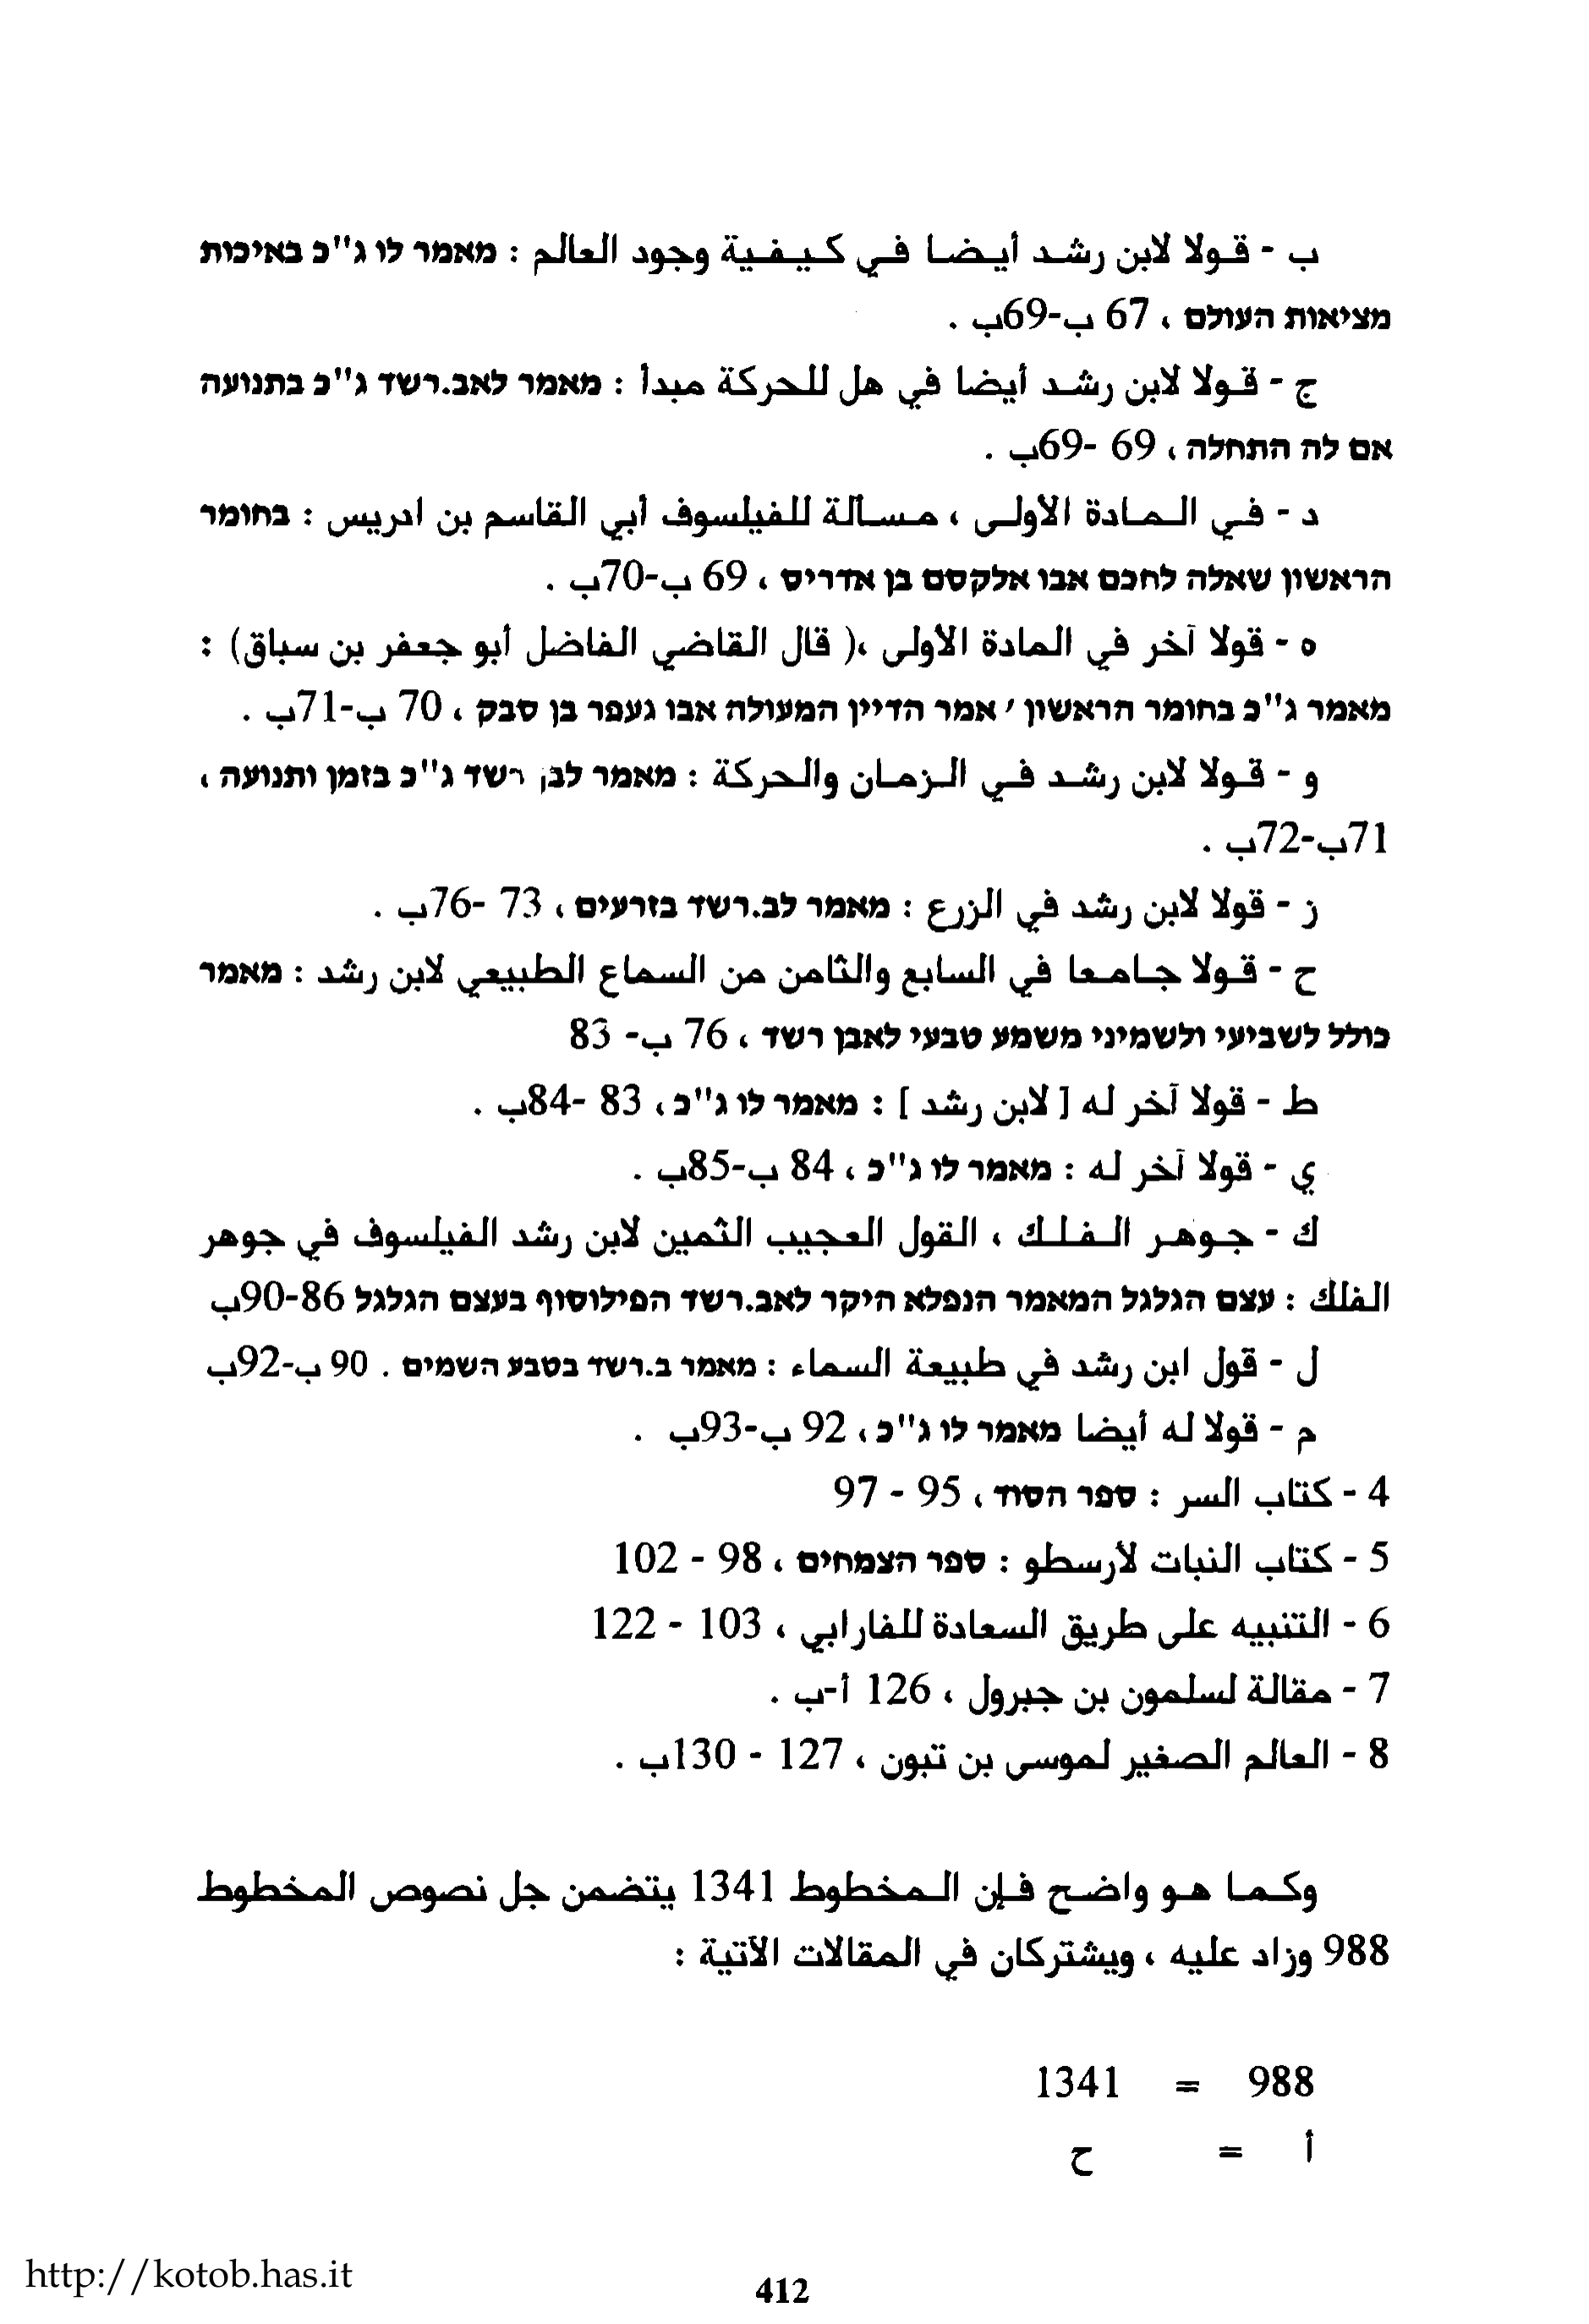 ب - قولا لابن رشد أيضا في كيفية وجود العالم : מאמר לו ג"כ באיכות
מציאות העולם ، 67 ب-69ب .
ج - قولا لابن رشد أيضا في هل للحركة مبدأ : מאמר לאב.רשד ג"כ בתנועה
אם לה התחלה ، 69 -69ب .
د - في المادة الاولى ، مسألة للفيلسوف أبي القاسم بن ادريس : בחומר
הראשון שאלה לחכם אבו אלקסם בן אדריס ، 69 ب-70ب .
ه - قولا آخر في المادة الاولى ،( قال القاضي الفاضل أبو جعفر بن سباق) :
מאמר ג"כ בחומר הראשון / אמר הדיין המעולה אבו געפר בן סבק ، 70 ب-71ب .
و - قولا لابن رشد في الزمان والحركة : מאמר לבן רשד ג"כ בזמן ותנועה ،
71ب-72ب .
ز - قولا لابن رشد في الزرع : מאמר לב.רשד בזרעים ، 73 -76ب .
ح - قولا جامعا في السابع والثامن من السماع الطبيعي لابن رشد : מאמר
כולל לשביעי ולשמיני משמע טבעי לאבן רשד ، 76 ب- 83
ط - قولا آخر له [ لابن رشد ] : מאמר לו ג"כ ، 83 -84ب .
ي - قولا آخر له : מאמר לו ג"כ ، 84 ب-85ب .
ك - جوهر الفلك ، القول العجيب الثمين لابن رشد الفيلسوف في جوهر
الفلك : עצם הגלגל המאמר הנפלא היקר לאב.רשד הפילוסוף בעצם הגלגל 86-90ب
ل - قول ابن رشد في طبيعة السماء : מאמר ב.רשד בטבע השמים . 90 ب-92ب
م - قولا له أيضا מאמר לו ג"כ ، 92 ب-93ب .
4 - كتاب السر : ספר הסוד ، 95 - 97
5 - كتاب النبات لأرسطو : ספר הצמחים ، 98 - 102
6 - التنبيه على طريق السعادة للفارابي ، 103 - 122
7 - مقالة لسلمون بن جبرول ، 126 أ-ب .
8 - العالم الصغير لموسى بن تبون ، 127 - 130ب .
وكما هو واضح فإن المخطوط 1341 يتضمن جل نصوص المخطوط
988 وزاد عليه ، ويشتركان في المقالات الآتية :
988 = 1341
أ = ح
http://kotob.has.it
412